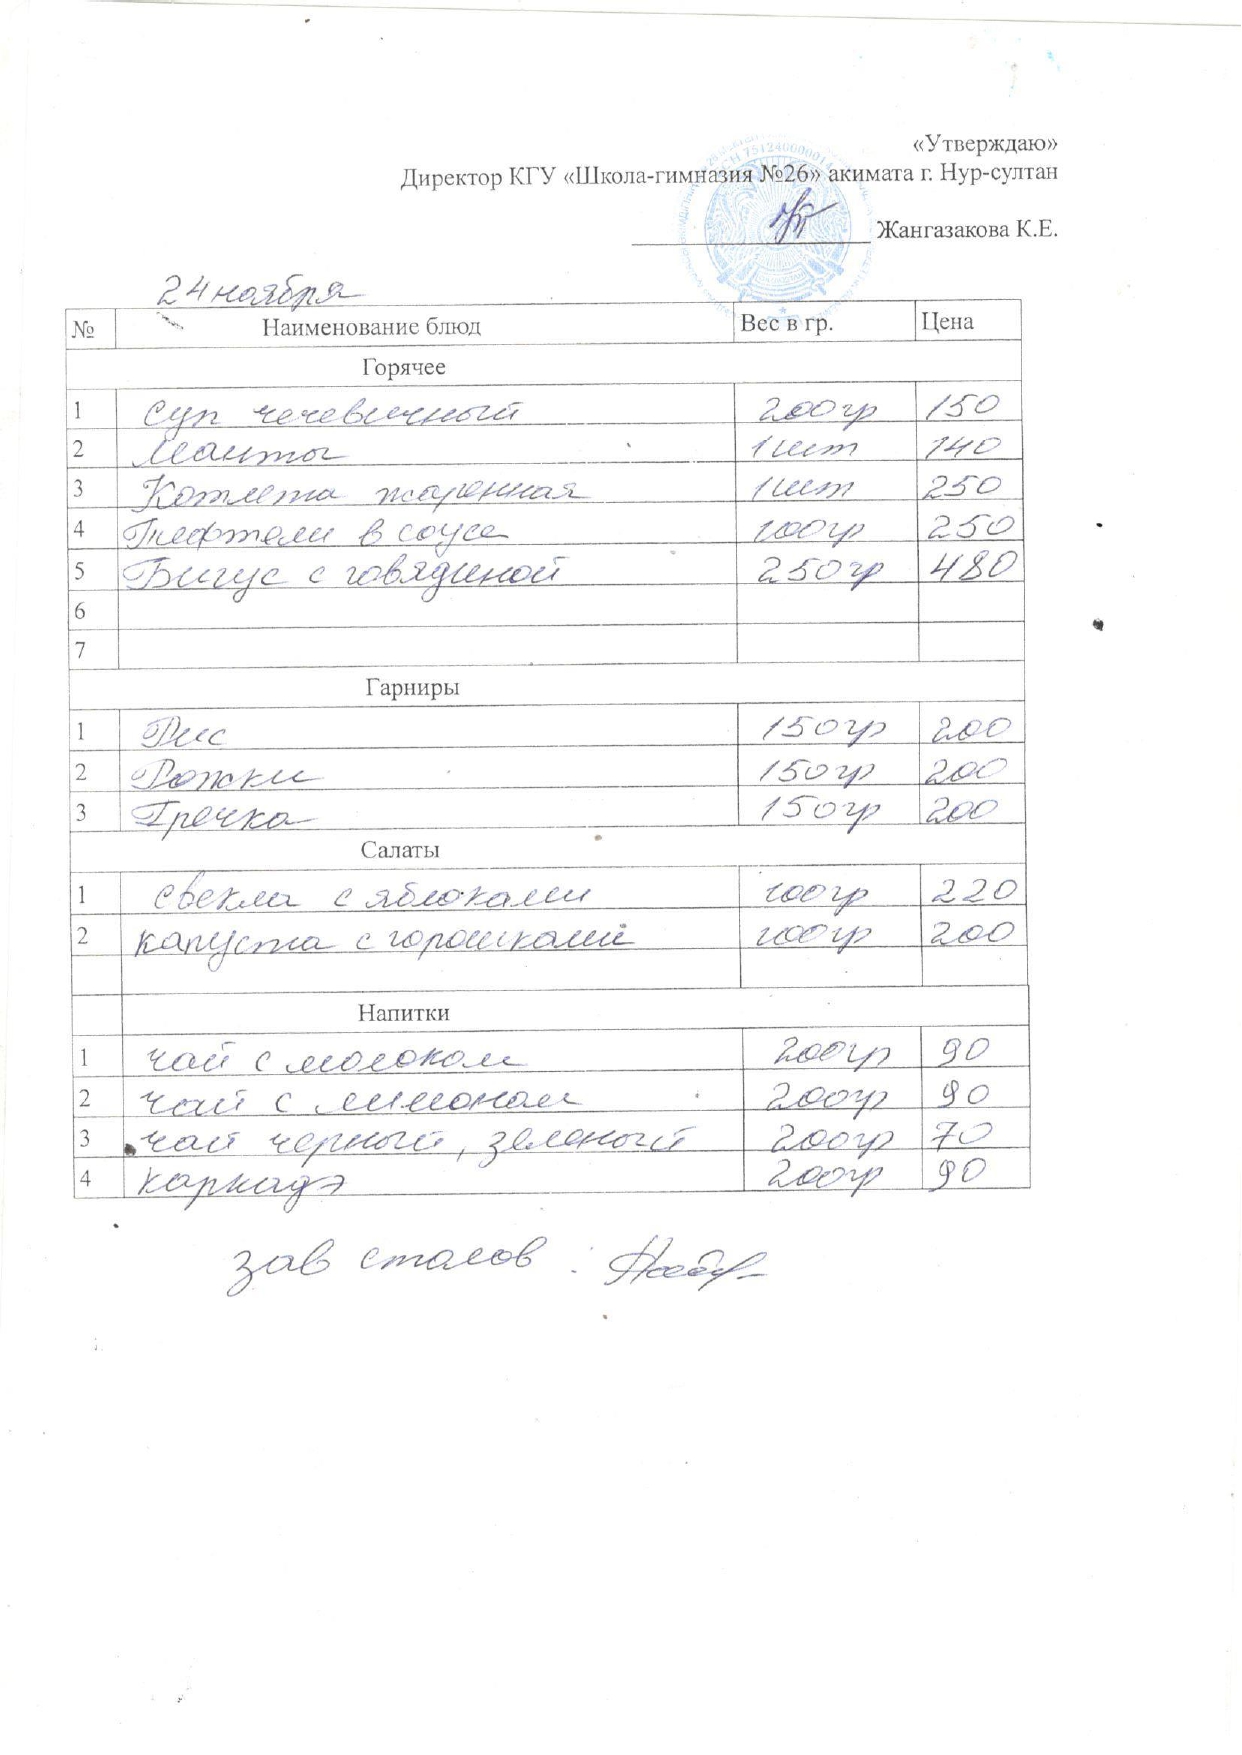 «Утверждаю»
Директор КГУ «Школа-гимназия №26» акимата г. Нур-султан
Жангазакова К.Е.
24 ноября
№ Наименование блюд Вес в гр. Цена
Горячее
1 Суп чечевичный 200гр 150
2 Манты 1шт 140
3 Котлета жаренная 1шт 250
4 Тефтели в соусе 100гр 250
5 Бигус с говядиной 250гр 480
6
7
Гарниры
1 Рис 150гр 200
2 Рожки 150гр 200
3 Гречка 150гр 200
Салаты
1 свекла с яблоками 100гр 220
2 капуста с горошками 100гр 200
Напитки
1 чай с молоком 200гр 90
2 чай с лимоном 200гр 90
3 чай черный, зеленый 200гр 70
4 каркадэ 200гр 90
зав столов :